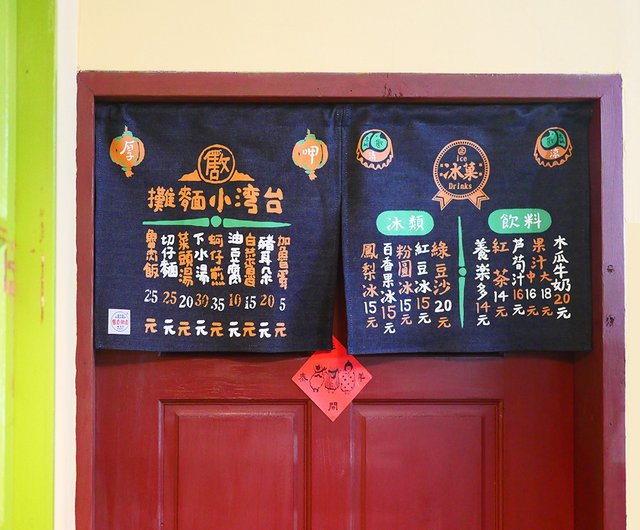 呷
厚
台湾小麵攤
加魯蛋 5元
豬耳朵 20元
白菜魯 15元
油豆腐 10元
蚵仔煎 35元
下水湯 30元
菜頭湯 20元
切仔麵 25元
魯肉飯 25元
ice
冰菓
Drinks
飲料
木瓜牛奶20元
果汁大18元
中16元
芦筍汁16元
紅茶14元
養楽多14元
冰類
綠豆沙20元
紅豆冰15元
粉圓冰15元
百香果冰15元
鳳梨冰15元
開